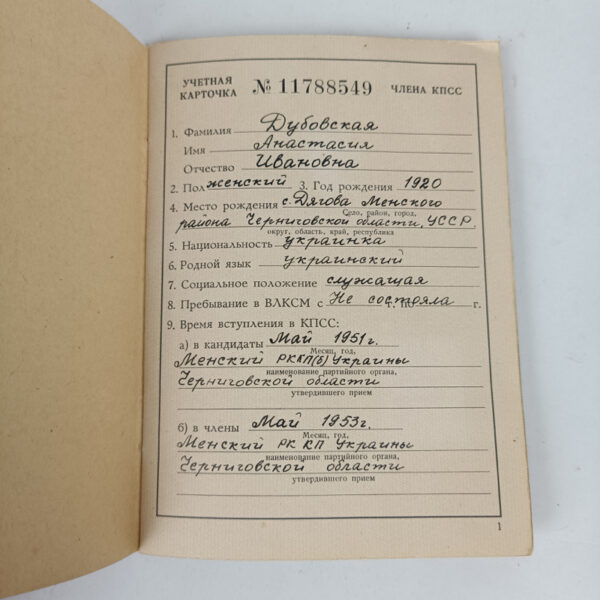 УЧЕТНАЯ КАРТОЧКА № 11788549 ЧЛЕНА КПСС
1. Фамилия Дубовская
Имя Анастасия
Отчество Ивановна
2. Пол женский 3. Год рождения 1920
4. Место рождения с. Дягова Менского
Село, район, город,
района Черниговской области, УССР
округ, область, край, республика
5. Национальность украинка
6. Родной язык украинский
7. Социальное положение служащая
8. Пребывание в ВЛКСМ с Не состояла г. по г.
9. Время вступления в КПСС:
а) в кандидаты Май 1951 г.
Месяц, год,
Менский РК КП(б) Украины
наименование партийного органа,
Черниговской области
утвердившего прием
б) в члены Май 1953 г.
Месяц, год,
Менский РК КП Украины
наименование партийного органа,
Черниговской области
утвердившего прием
1